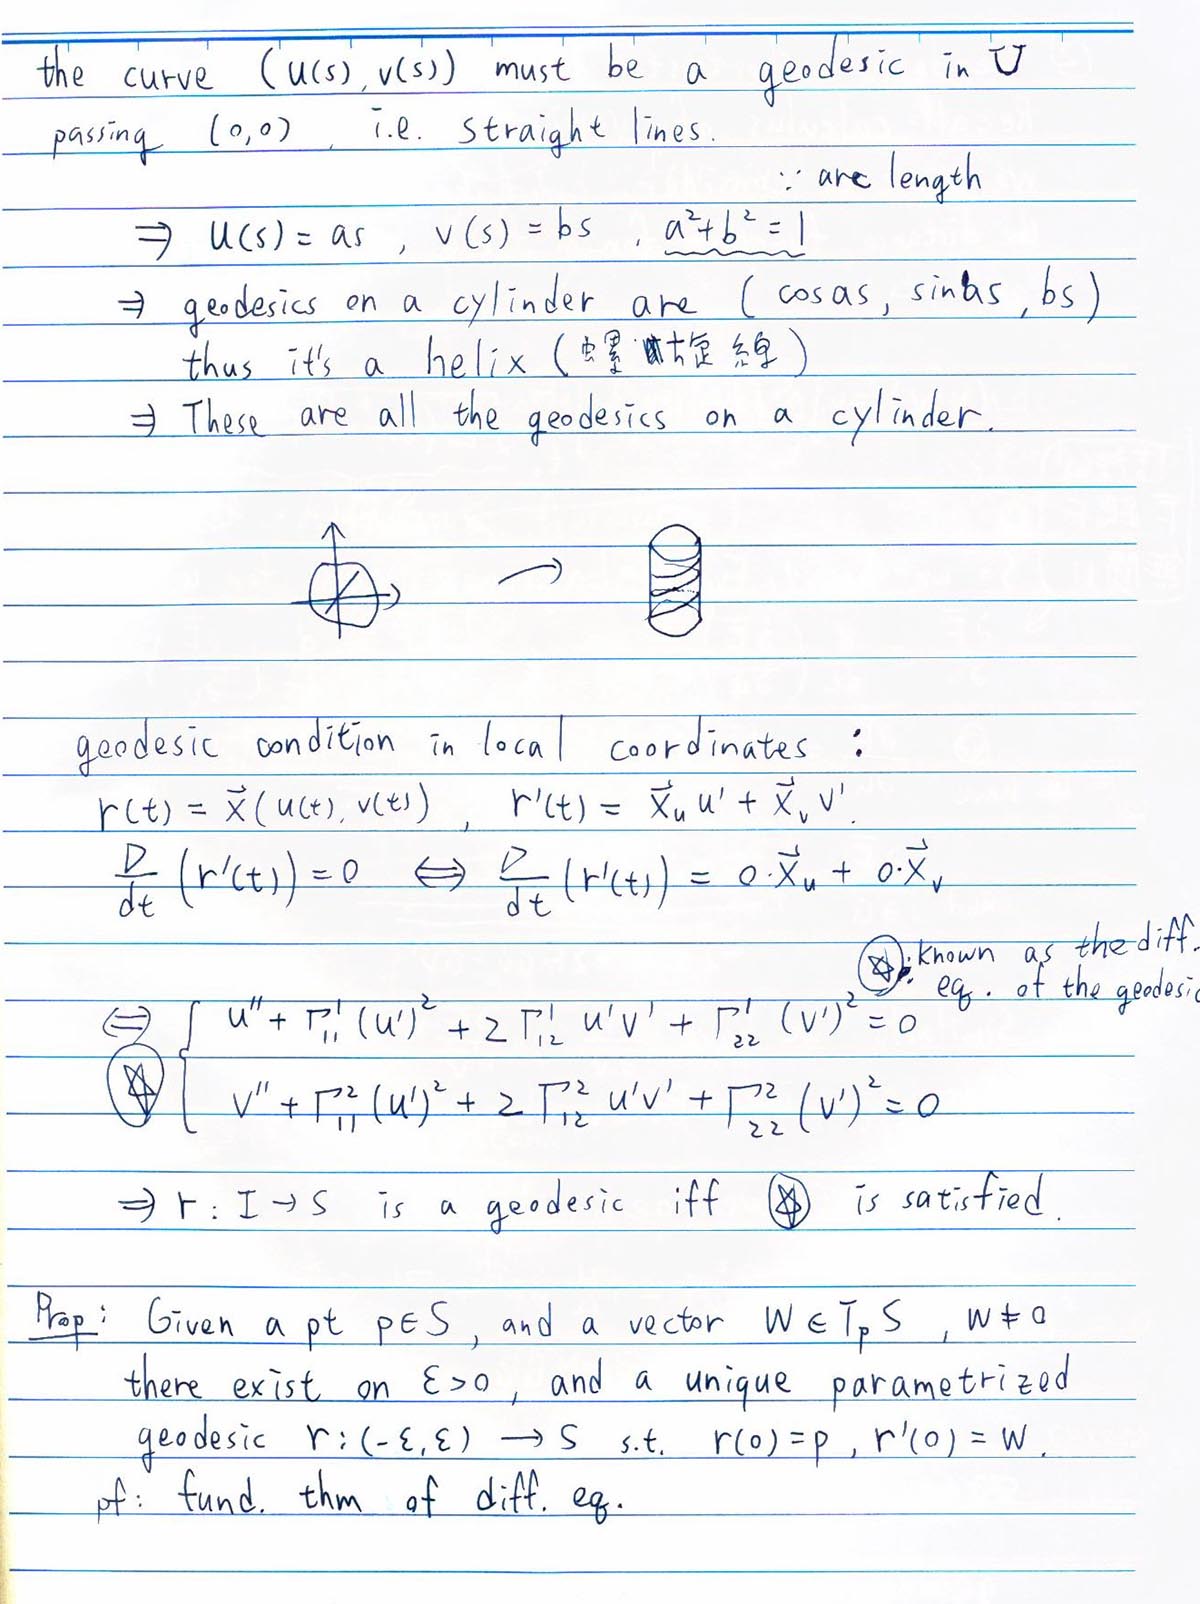 the curve (u(s), v(s)) must be a geodesic in U
passing (0,0), i.e. straight lines.
∵ arc length
⇒ u(s) = as, v(s) = bs, a²+b² = 1
⇒ geodesics on a cylinder are (cos as, sin as, bs)
thus it's a helix (螺旋線)
⇒ These are all the geodesics on a cylinder.
geodesic condition in local coordinates :
r(t) = x⃗(u(t), v(t)), r'(t) = x⃗ᵤ u' + x⃗ᵥ v'.
D/dt (r'(t)) = 0 ⇔ D/dt (r'(t)) = 0·x⃗ᵤ + 0·x⃗ᵥ
☆: known as the diff.
eq. of the geodesic
⇔ { u'' + Γ₁₁¹ (u')² + 2Γ₁₂¹ u'v' + Γ₂₂¹ (v')² = 0
☆ v'' + Γ₁₁² (u')² + 2Γ₁₂² u'v' + Γ₂₂² (v')² = 0
⇒ r : I → S is a geodesic iff ☆ is satisfied.
Prop: Given a pt p∈S, and a vector W ∈ TₚS, W ≠ 0
there exist on ε>0, and a unique parametrized
geodesic r : (-ε, ε) → S s.t. r(0) = p, r'(0) = W.
pf: fund. thm of diff. eq.